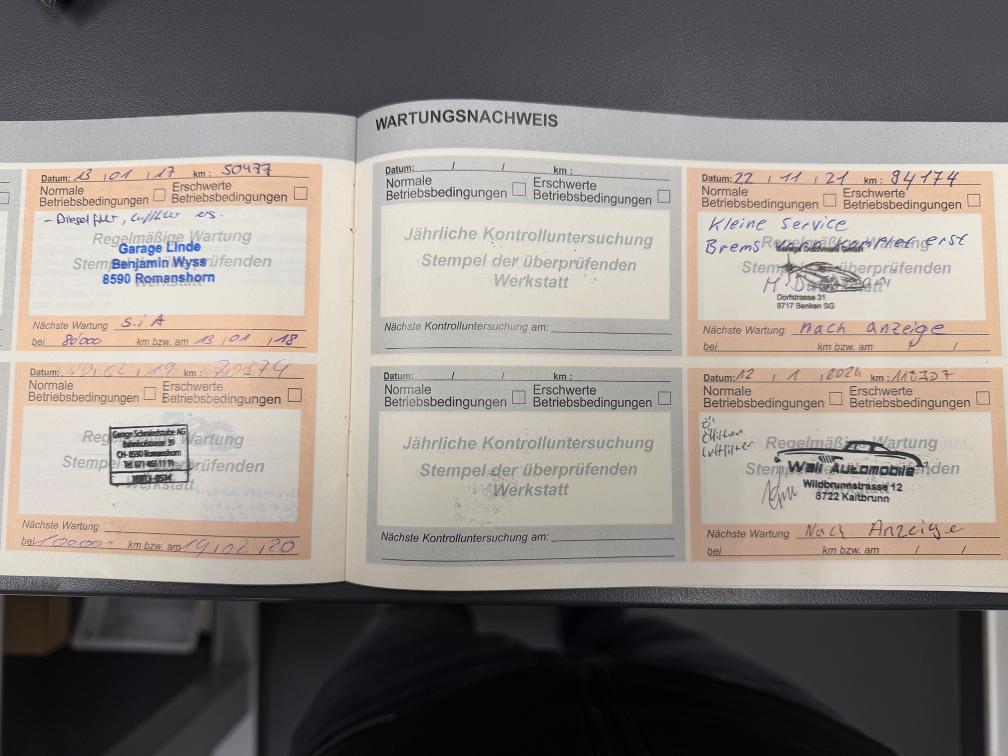 WARTUNGSNACHWEIS
Datum: 13 , 01 , 17 km: 50477
Normale Betriebsbedingungen
Erschwerte Betriebsbedingungen
Regelmäßige Wartung
Stempel der überprüfenden
Werkstatt
Garage Linde
Benjamin Wyss
8590 Romanshorn
Nächste Wartung S.i A
bei 80'000 km bzw. am 13 , 01 , 18
Datum: 02 , 19 km:
Normale Betriebsbedingungen
Erschwerte Betriebsbedingungen
Regelmäßige Wartung
Stempel der überprüfenden
Werkstatt
Garage Schmiedstube AG
Bahnhofstrasse 39
CH-8590 Romanshorn
Nächste Wartung
bei 100000.- km bzw. am 19 , 02 , 20
Datum: / / km:
Normale Betriebsbedingungen
Erschwerte Betriebsbedingungen
Jährliche Kontrolluntersuchung
Stempel der überprüfenden
Werkstatt
Nächste Kontrolluntersuchung am:
Datum: / / km:
Normale Betriebsbedingungen
Erschwerte Betriebsbedingungen
Jährliche Kontrolluntersuchung
Stempel der überprüfenden
Werkstatt
Nächste Kontrolluntersuchung am:
Datum: 22 , 11 , 21 km: 94174
Normale Betriebsbedingungen
Erschwerte Betriebsbedingungen
Kleine Service
Brems
Dorfstrasse 31
8717 Benken SG
Nächste Wartung nach anzeige
bei km bzw. am / /
Datum: 12 , 1 , 2024 km:
Normale Betriebsbedingungen
Erschwerte Betriebsbedingungen
Öl
Ölfilter
Luftfilter
Regelmäßige Wartung
Stempel der überprüfenden
Wali Automobile
Wildbrunnstrasse 12
8722 Kaltbrunn
Nächste Wartung Nach Anzeige
bei km bzw. am / /